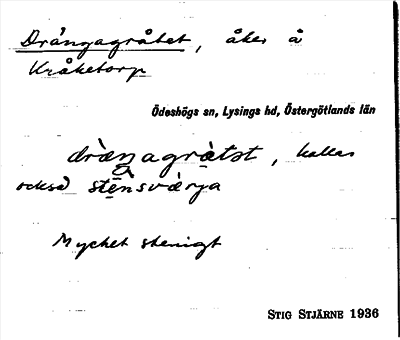 Drängagråtet, åker å
Kråketorp
Ödeshögs sn, Lysings hd, Östergötlands län
kallas
också
Mycket stenigt
STIG STJÄRNE 1936